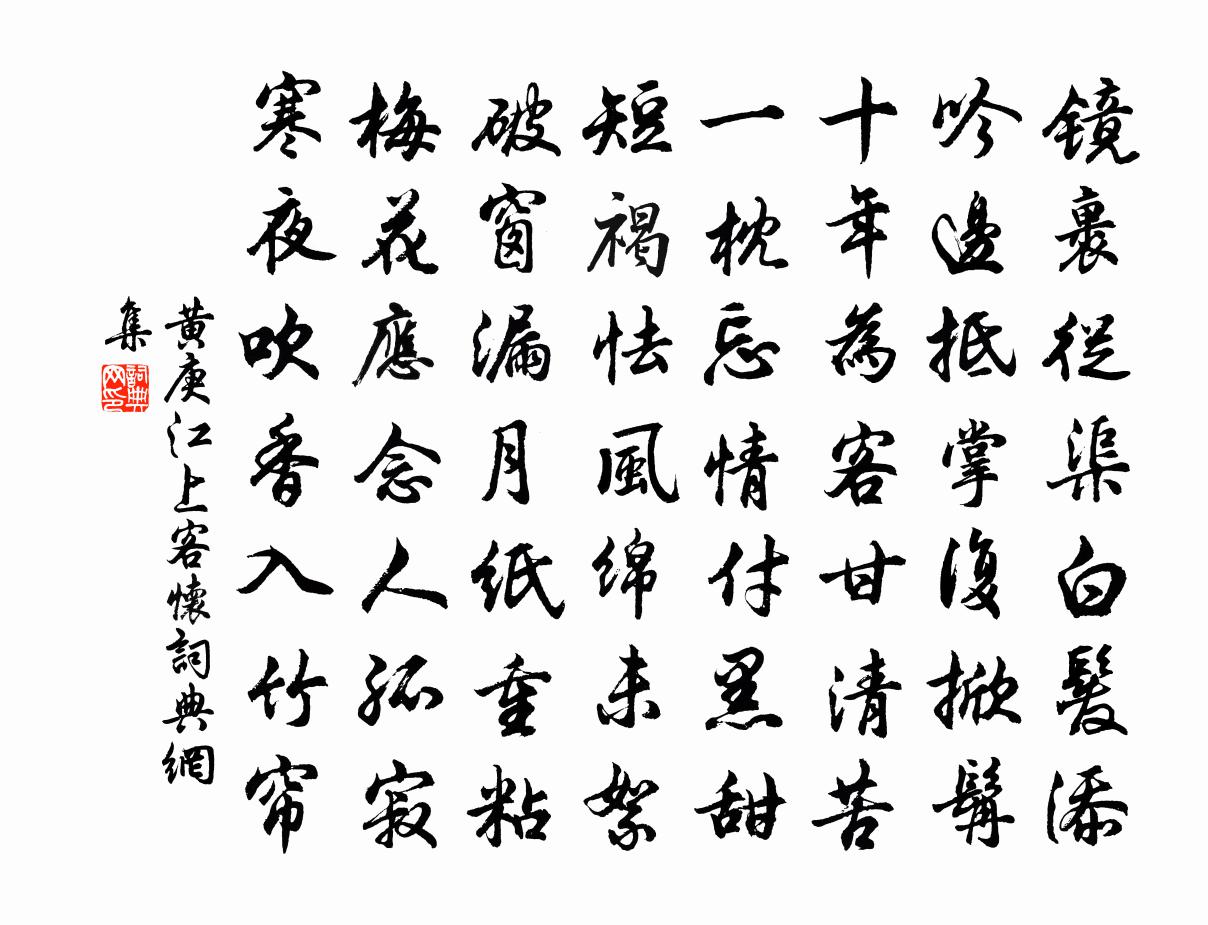 鏡裏從渠白髮添
吟邊抵掌復掀髯
十年為客甘清苦
一枕忘情付黑甜
短褐怯風綿未絮
破窗漏月紙重粘
梅花應念人孤寂
寒夜吹香入竹帘
黄庚江上客懷詞典網
集
詞典
网印